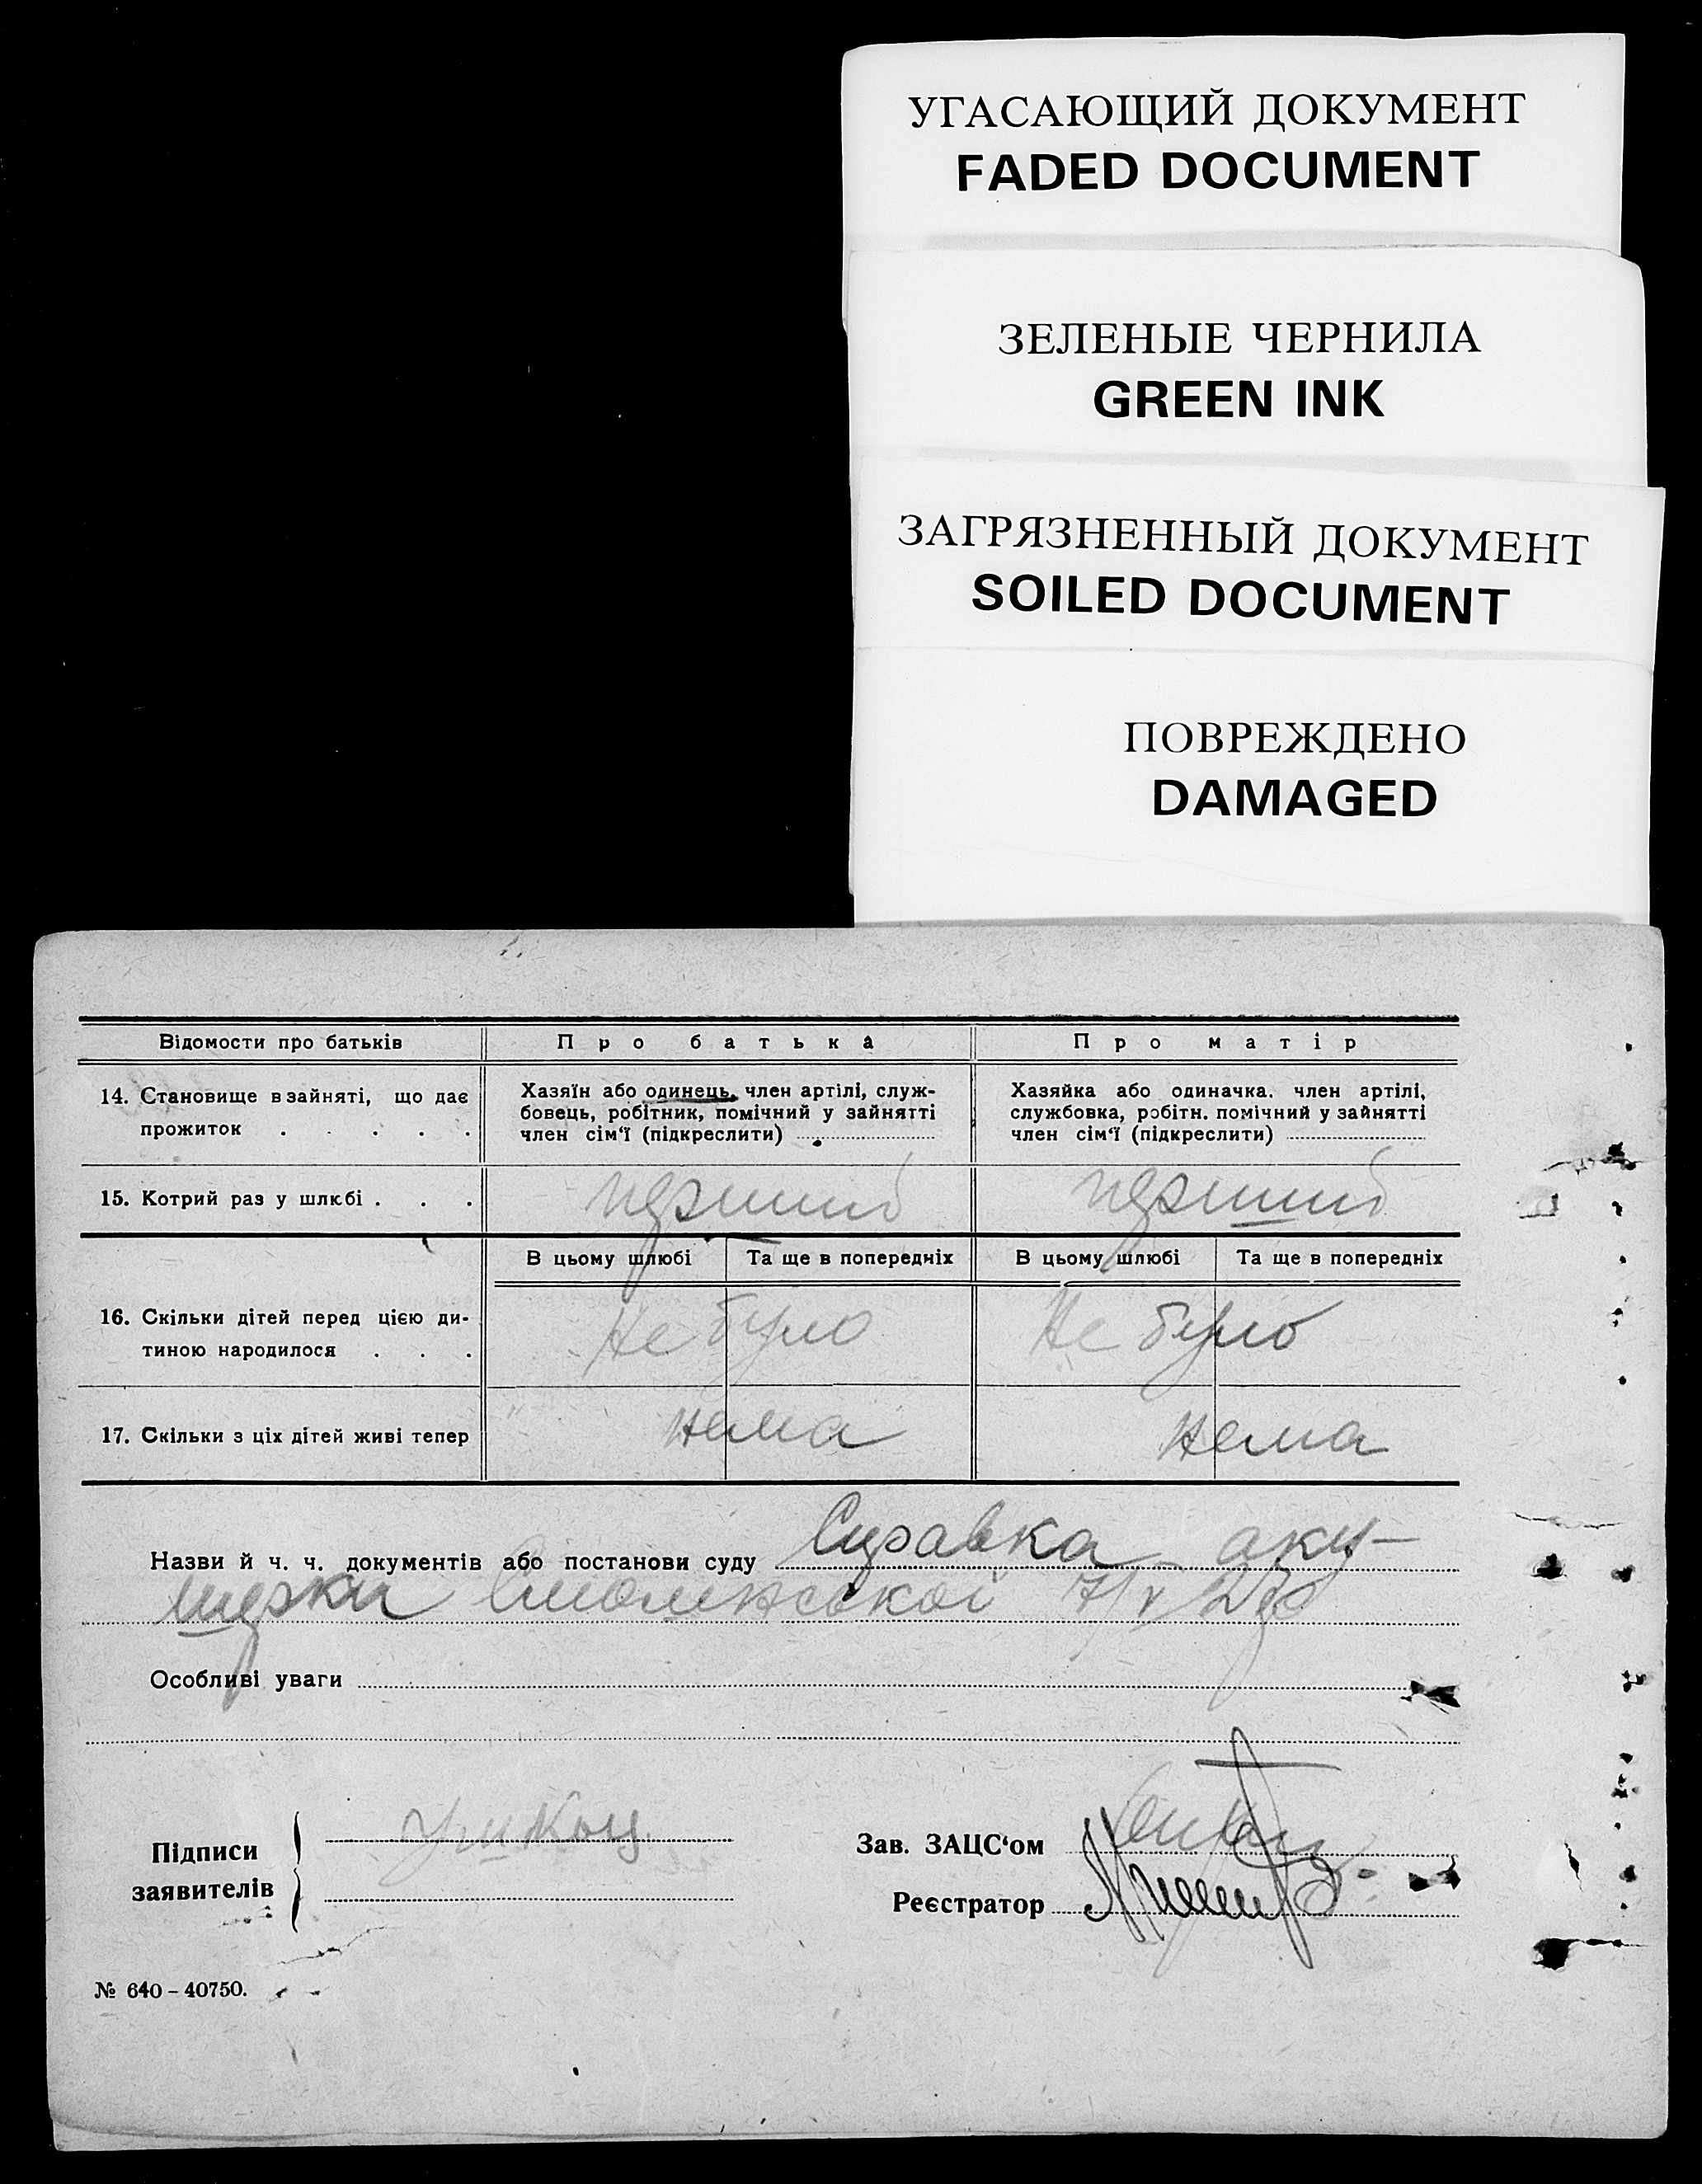 УГАСАЮЩИЙ ДОКУМЕНТ
FADED DOCUMENT
ЗЕЛЕНЫЕ ЧЕРНИЛА
GREEN INK
ЗАГРЯЗНЕННЫЙ ДОКУМЕНТ
SOILED DOCUMENT
ПОВРЕЖДЕНО
DAMAGED
Відомости про батьків Про батька Про матір
14. Становище в зайняті, що дає прожиток . . . . .
Хазяїн або одинець, член артілі, служ-
бовець, робітник, помічний у зайнятті
член сім'ї (підкреслити)
Хазяйка або одиначка. член артілі,
службовка, робітн. помічний у зайнятті
член сім'ї (підкреслити)
15. Котрий раз у шлюбі . . . перший перший
В цьому шлюбі Та ще в попередніх В цьому шлюбі Та ще в попередніх
16. Скільки дітей перед цією ди-
тиною народилося . . . Не було Не було
17. Скільки з ціх дітей живі тепер нема нема
Назви й ч. ч. документів або постанови суду Справка аку-
шерки Смоленської 7/V
Особливі уваги
Підписи
заявителів
Зав. ЗАЦС'ом
Реєстратор
№ 640 – 40750.